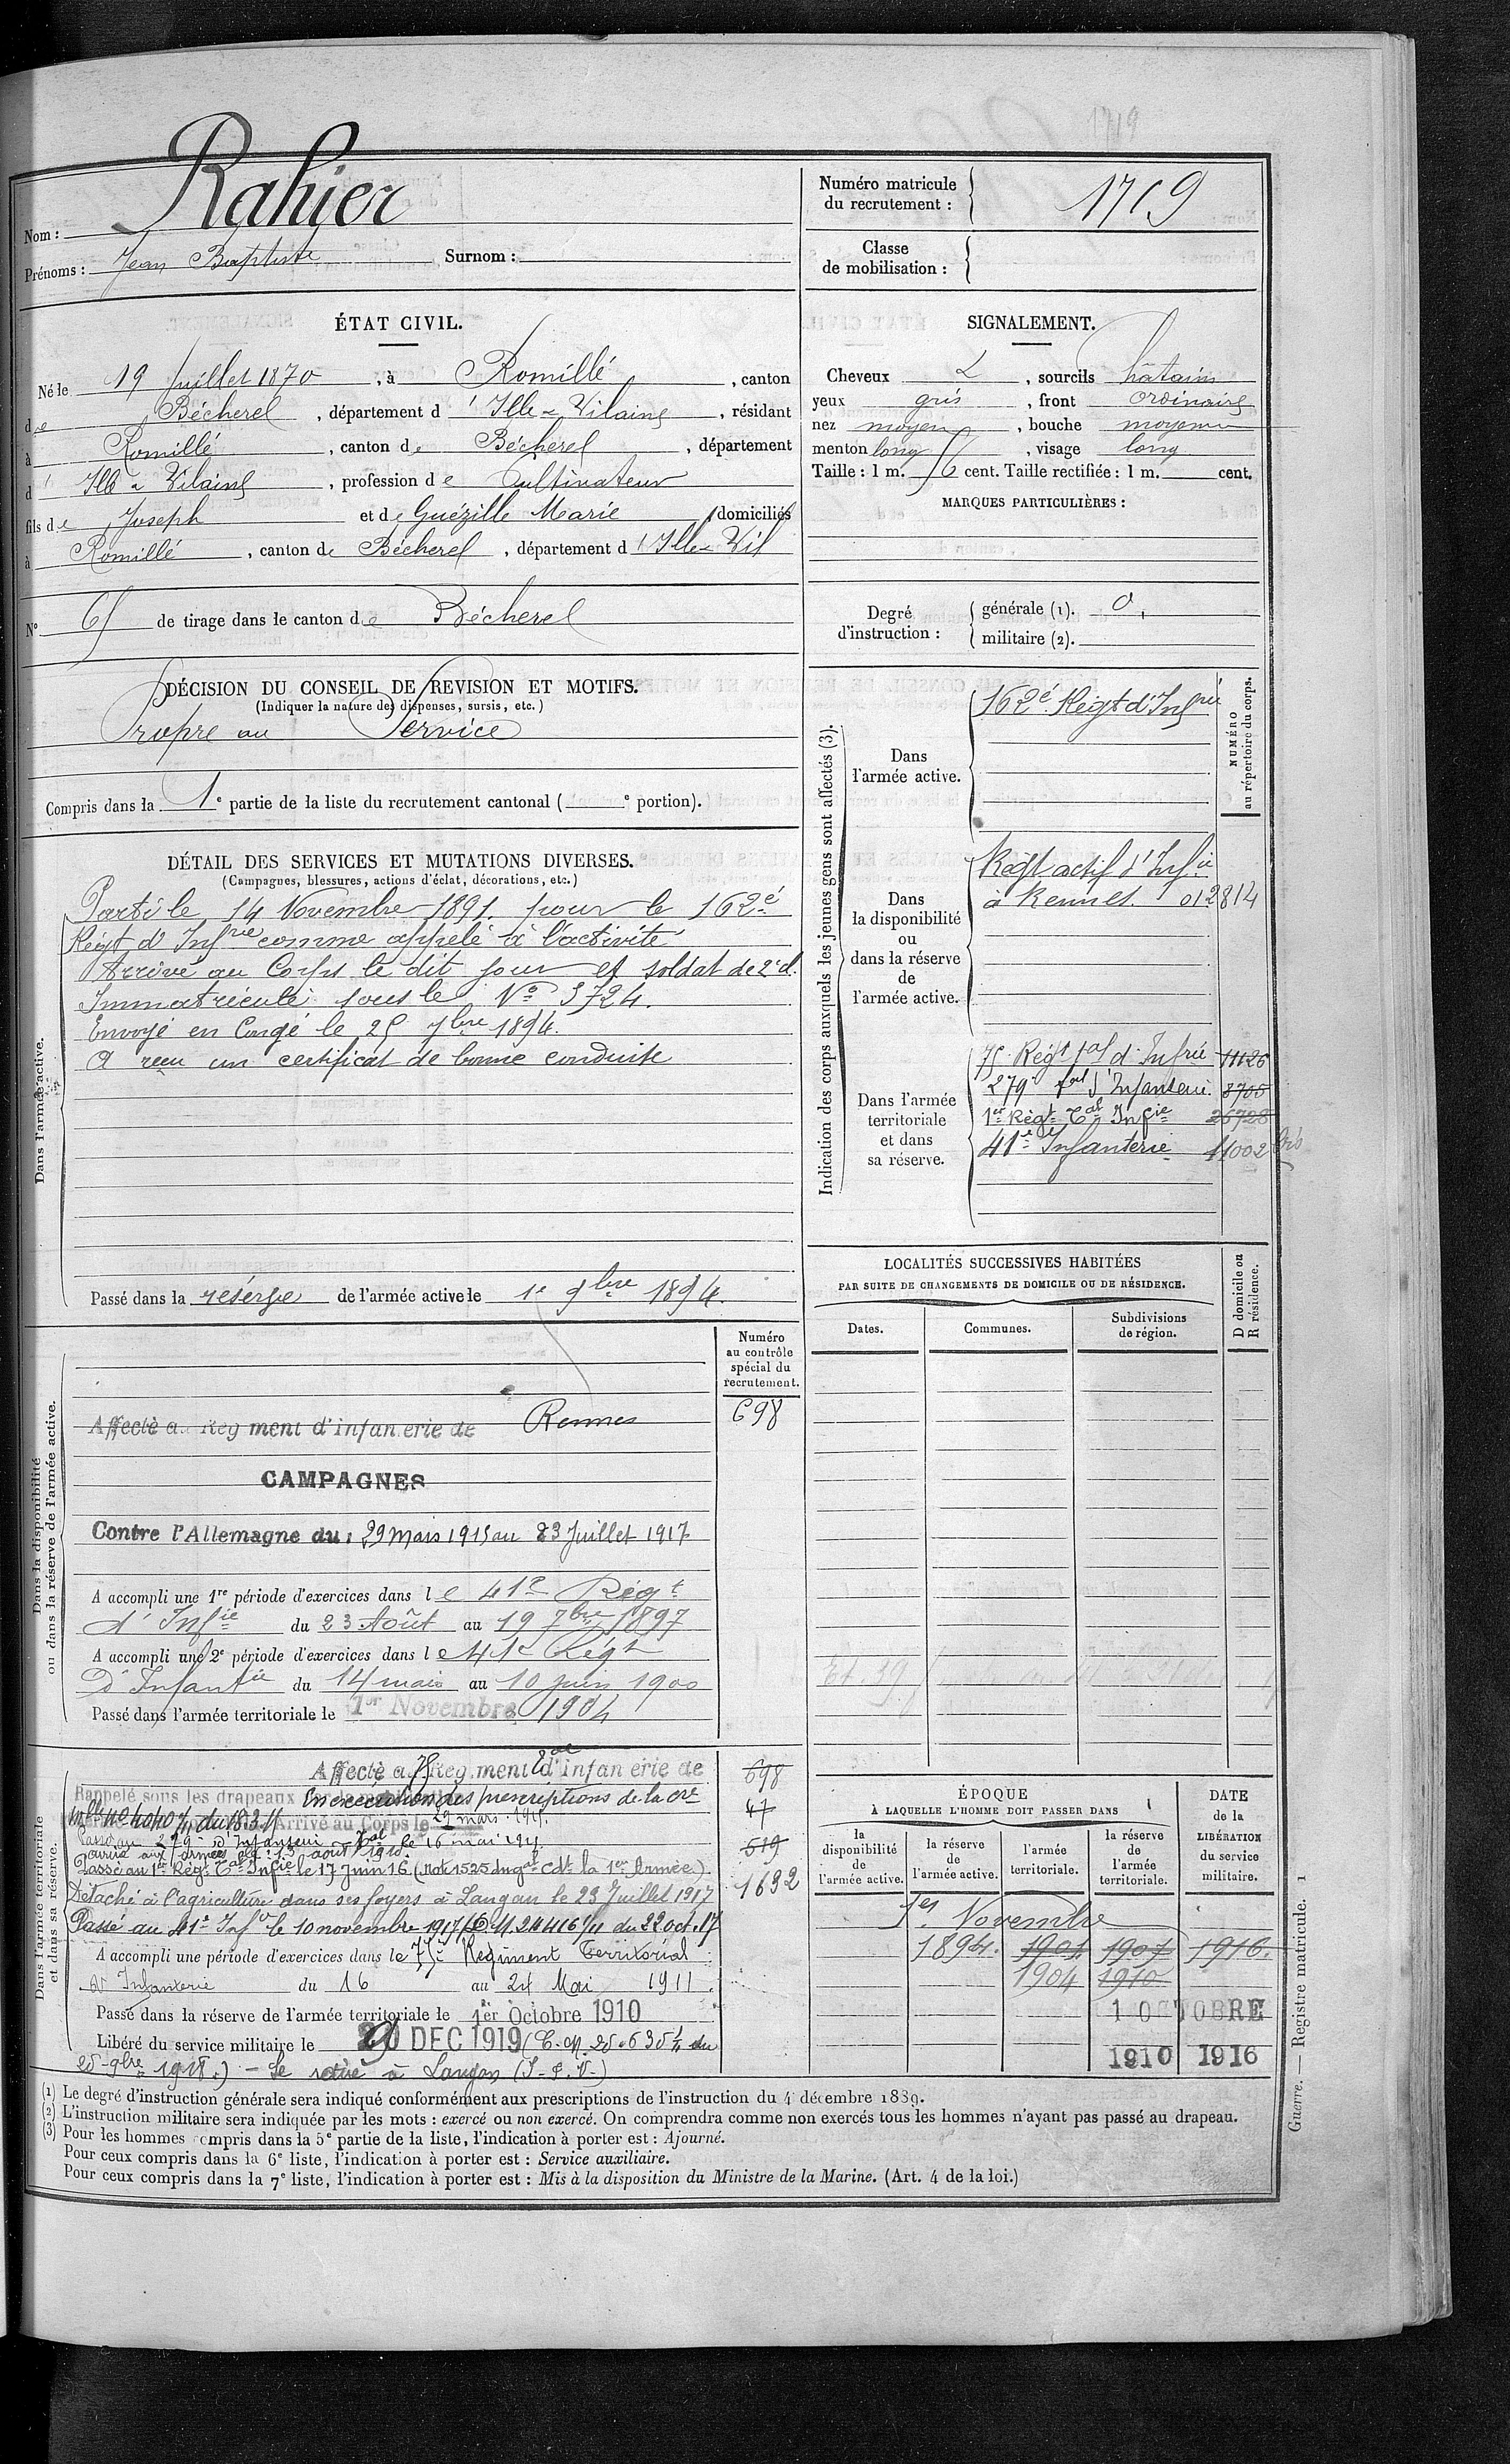 1719
Nom : Rahier
Prénoms : Jean Baptiste Surnom :
Numéro matricule du recrutement : 1719
Classe de mobilisation :
ÉTAT CIVIL.
Né le 19 Juillet 1870, à Romillé, canton
de Bécherel, département d'Ille & Vilaine, résidant
à Romillé, canton de Bécherel, département
d'Ille & Vilaine, profession de Cultivateur
fils de Joseph et de Guézille Marie domiciliés
à Romillé, canton de Bécherel, département d'Ille & Vil
N° de tirage dans le canton de Bécherel
SIGNALEMENT.
Cheveux &, sourcils châtains
yeux gris, front ordinaire
nez moyen, bouche moyenne
menton long, visage long
Taille : 1 m. 56 cent. Taille rectifiée : 1 m. cent.
MARQUES PARTICULIÈRES :
Degré d'instruction : générale (1). 0.
militaire (2).
DÉCISION DU CONSEIL DE REVISION ET MOTIFS.
(Indiquer la nature des dispenses, sursis, etc.)
Propre au Service
Compris dans la 1e partie de la liste du recrutement cantonal ( e portion).
DÉTAIL DES SERVICES ET MUTATIONS DIVERSES.
(Campagnes, blessures, actions d'éclat, décorations, etc.)
Dans l'armée active.
Parti le 14 Novembre 1891 pour le 162e
Régt d'Infrie comme appelé à l'activité
Arrivé au Corps le dit jour et soldat de 2e cl.
Immatriculé sous le No 3724.
Envoyé en Congé le 25 7bre 1894.
A reçu un certificat de bonne conduite
Passé dans la réserve de l'armée active le 1e 9bre 1894.
Indication des corps auxquels les jeunes gens sont affectés (3).
NUMÉRO au répertoire du corps.
Dans l'armée active.
162e Régt d'Infrie
Dans la disponibilité ou dans la réserve de l'armée active.
Régt actif d'Infie
à Rennes. 012814
Dans l'armée territoriale et dans sa réserve.
75 Régt tal d'Infrie 11126
279e tal d'Infanterie 8705
1er Régt Tal Infie 26728
41e Infanterie 11002 bis
LOCALITÉS SUCCESSIVES HABITÉES
PAR SUITE DE CHANGEMENTS DE DOMICILE OU DE RÉSIDENCE.
Dates. Communes. Subdivisions de région. D domicile ou R résidence.
Dans la disponibilité ou dans la réserve de l'armée active.
Numéro au contrôle spécial du recrutement.
Affecté au Rég ment d'infan.erie de Rennes 698
CAMPAGNES
Contre l'Allemagne du : 29 Mars 1915 au 23 Juillet 1917
A accompli une 1re période d'exercices dans le 41e Régt
d'Infie du 23 Août au 19 7bre 1897
A accompli une 2e période d'exercices dans le 41e Régt
D'Infantie du 14 mai au 10 juin 1900
Passé dans l'armée territoriale le 1er Novembre 1904
Dans l'armée territoriale et dans sa réserve.
Affecté au 75 Rég.ment tal d'infan erie de 698
Rappelé sous les drapeaux En exécution des prescriptions de la Cre
Arrivé au Corps le 29 mars 1915. 47
Passé au 279e d'Infanterie Tal le 16 mai 1915. 519
Passé au 1er Rég. Tal Infie le 17 Juin 16 (Note 1525 du Gal Cdt la 1ère Armée). 1632
Détaché à l'agriculture dans ses foyers à Langan le 23 Juillet 1917
Passé au 41e Infie le 10 novembre 1917 (C.M. 24416 1/11 du 22 oct. 17
A accompli une période d'exercices dans le 75e Régiment Territorial
d'Infanterie du 16 au 24 Mai 1911.
Passé dans la réserve de l'armée territoriale le 1er Octobre 1910
Libéré du service militaire le DEC 1919 (C.M. du
9bre 1918.) – Se retire à Langan (I-&-V-)
ÉPOQUE À LAQUELLE L'HOMME DOIT PASSER DANS
la disponibilité de l'armée active.
la réserve de l'armée active.
l'armée territoriale.
la réserve de l'armée territoriale.
DATE de la LIBÉRATION du service militaire.
1er Novembre
1894. 1901 1907 1916.
1904 1910
1 OCTOBRE
1910 1916
(1) Le degré d'instruction générale sera indiqué conformément aux prescriptions de l'instruction du 4 décembre 1889.
(2) L'instruction militaire sera indiquée par les mots : exercé ou non exercé. On comprendra comme non exercés tous les hommes n'ayant pas passé au drapeau.
(3) Pour les hommes compris dans la 5e partie de la liste, l'indication à porter est : Ajourné.
Pour ceux compris dans la 6e liste, l'indication à porter est : Service auxiliaire.
Pour ceux compris dans la 7e liste, l'indication à porter est : Mis à la disposition du Ministre de la Marine. (Art. 4 de la loi.)
Guerre. — Registre matricule. 1